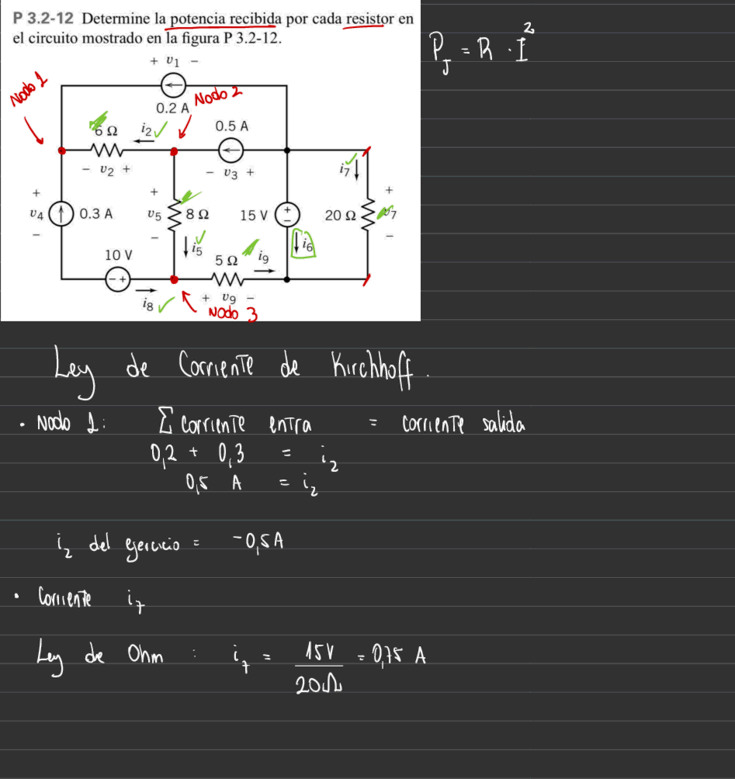 P 3.2-12 Determine la potencia recibida por cada resistor en
el circuito mostrado en la figura P 3.2-12.
P_J = R · I²
+ v1 −
0.2 A
Nodo 1
Nodo 2
6 Ω
i2
0.5 A
− v2 +
− v3 +
i7
+
v4
−
0.3 A
+
v5
−
8 Ω
15 V
+
−
20 Ω
+
v7
−
i5
i6
10 V
− +
5 Ω
i9
i8
+ v9 −
Nodo 3
Ley de Corriente de Kirchhoff.
• Nodo 1: Σ corriente entra = corriente salida
0,2 + 0,3 = i2
0,5 A = i2
i2 del ejercicio = -0,5A
• Corriente i7
Ley de Ohm : i7 = 15V / 20Ω = 0,75 A